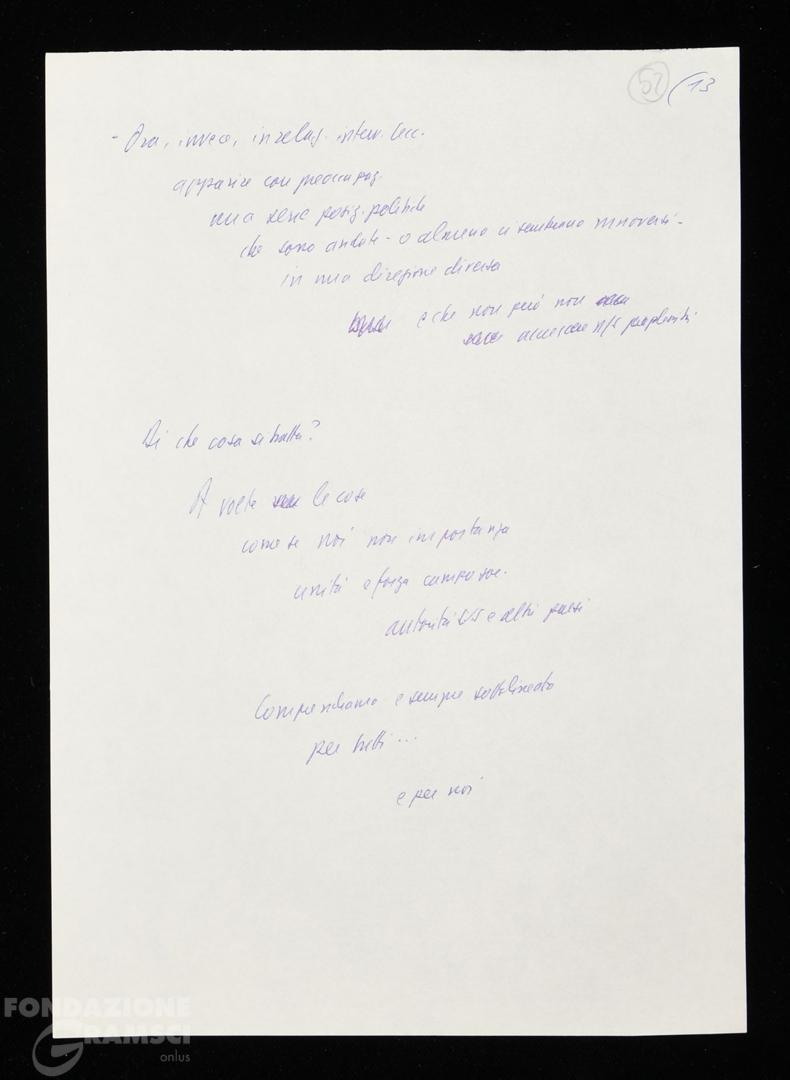 52 (13
- Ora, invece, in relaz. interv. ecc.
apparire con preoccupaz.
una serie posiz. politiche
che sono andate - o almeno ci sembrano muoversi -
in una direzione diversa
e che non può non
accrescere ns perplessità
Di che cosa si tratta?
A volte le cose
come se noi non importanza
unità e forza campo soc.
autorità US e altri paesi
Comprendiamo e sempre sottolineato
per tutti ...
e per noi
FONDAZIONE
GRAMSCI
onlus